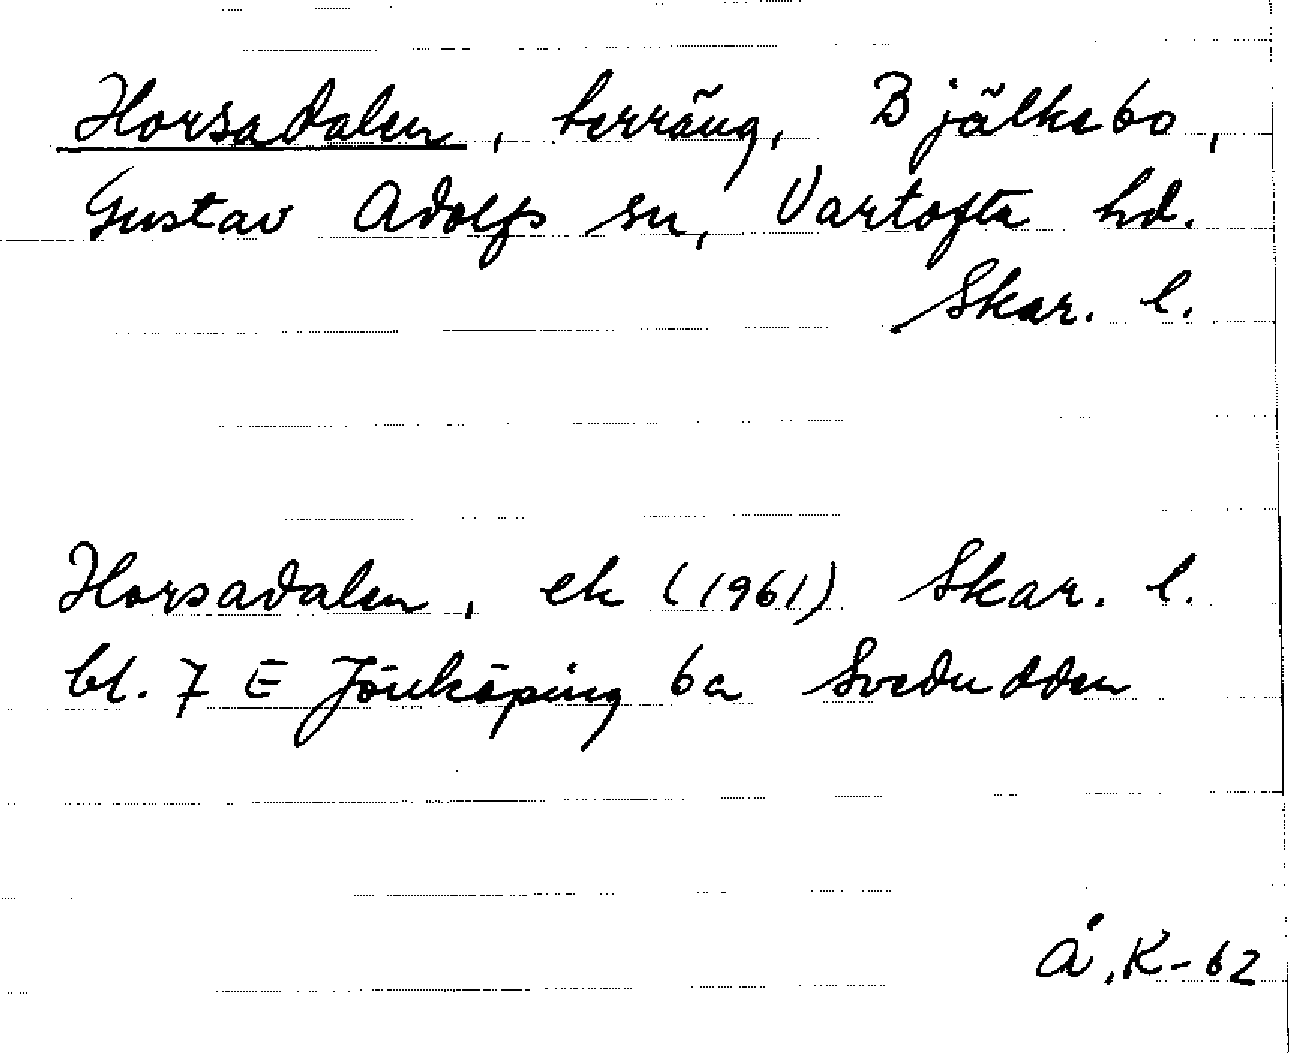 Horsadalen, terräng, Bjälkebo,
Gustav Adolfs sn, Vartofta hd.
Skar. l.
Horsadalen, ek (1961) Skar. l.
bl. 7 E Jönköping 6a Svedudden
Å.K-62